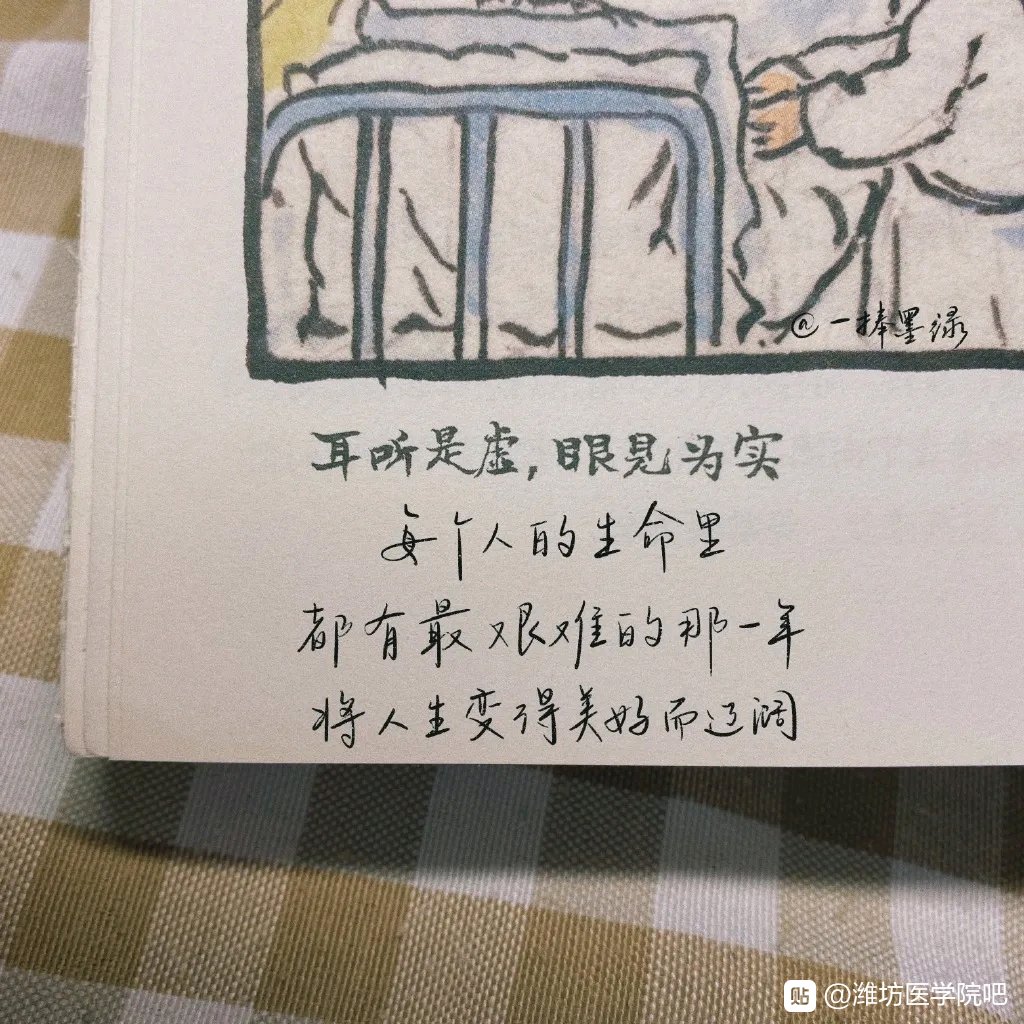 @一捧墨绿
耳听是虚，眼见为实
每个人的生命里
都有最艰难的那一年
将人生变得美好而辽阔
贴 @潍坊医学院吧